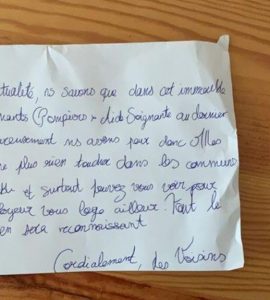 tualité, ns savons que dans cet immeuble
nants (Pompiers + Aide Soignante au dernier
eusement ns avons peur donc Mlles
ne plus rien toucher dans les communs
et surtout pouvez vous voir pour
loyeur vous loge ailleurs. Tout le
en sera reconnaissant
Cordialement, des Voisins